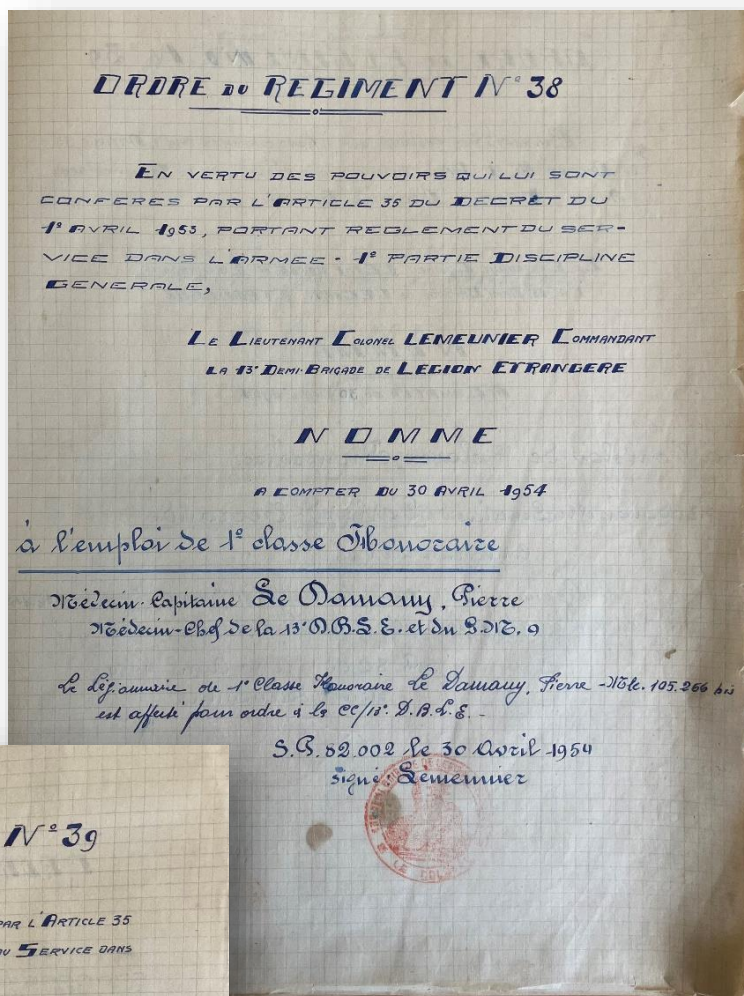 ORDRE DU REGIMENT N° 38
EN VERTU DES POUVOIRS QUI LUI SONT
CONFERES PAR L'ARTICLE 35 DU DECRET DU
1° AVRIL 1953, PORTANT REGLEMENT DU SER-
VICE DANS L'ARMEE - 1° PARTIE DISCIPLINE
GENERALE,
LE LIEUTENANT COLONEL LEMEUNIER COMMANDANT
LA 13° DEMI-BRIGADE DE LEGION ETRANGERE
NOMME
A COMPTER DU 30 AVRIL 1954
à l'emploi de 1° classe Honoraire
Médecin-Capitaine Le Damany, Pierre
Médecin-Chef de la 13° D.B.L.E. et du G.M. 9
Le Légionnaire de 1° Classe Honoraire Le Damany, Pierre - Mle. 105.266 bis
est affecté pour ordre à la CC/13°. D.B.L.E.-
S.P. 82.002 le 30 Avril 1954
signé: Lemeunier
N° 39
PAR L'ARTICLE 35
DU SERVICE DANS